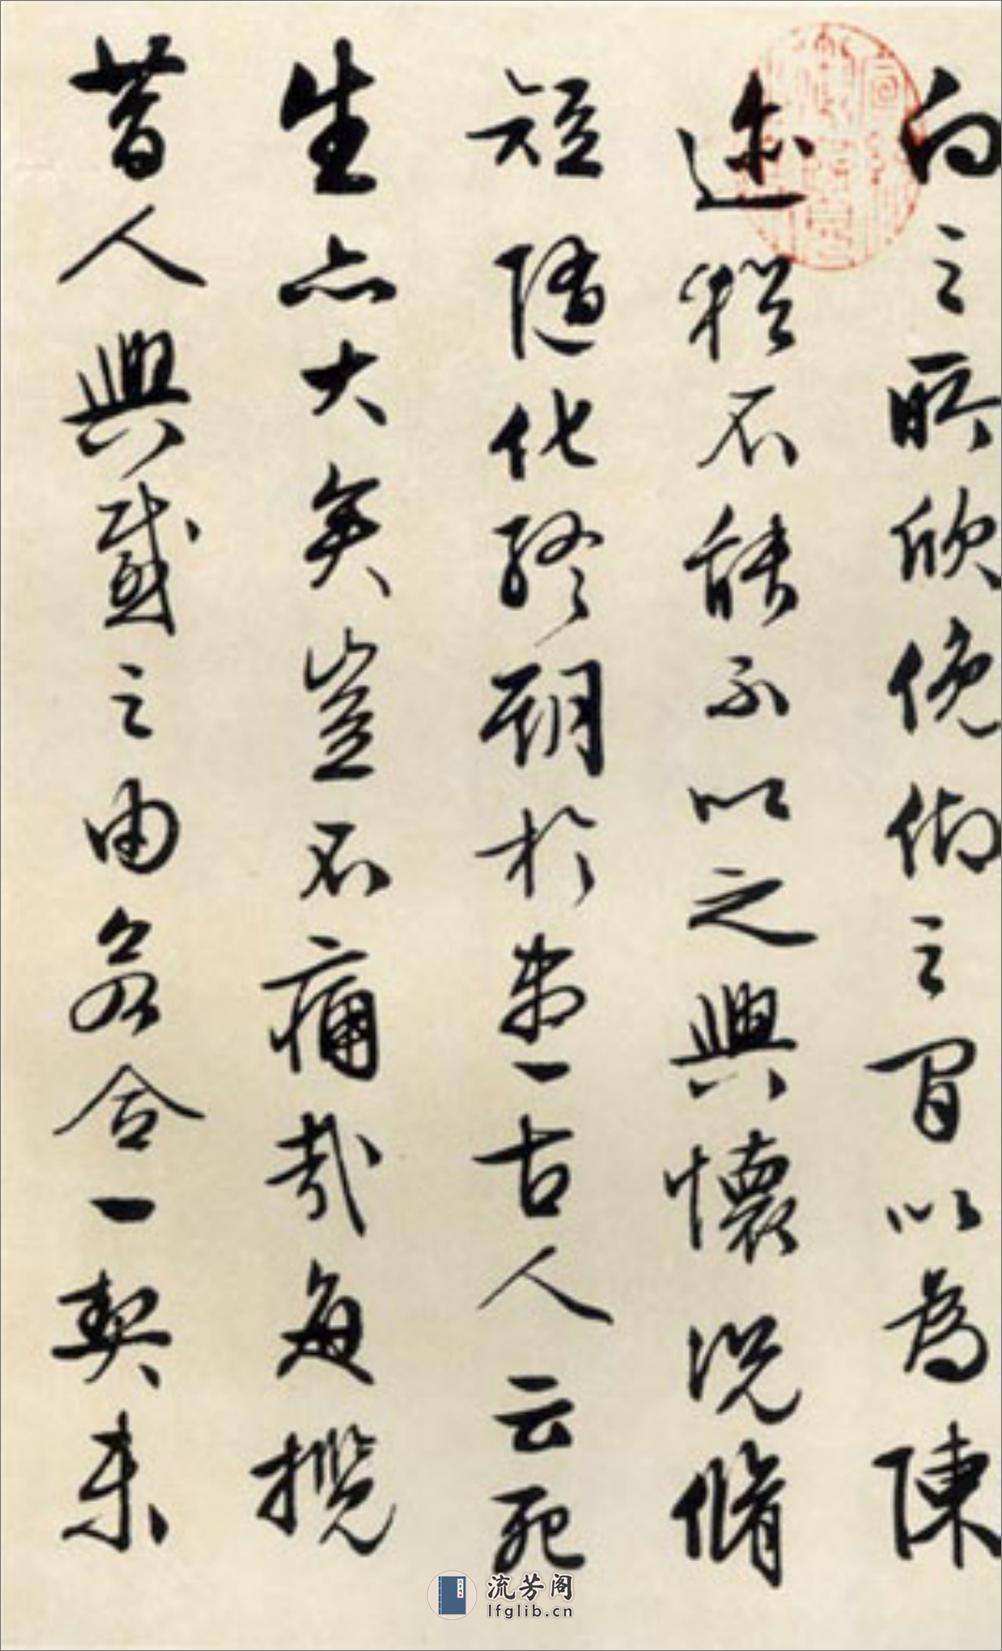 向之所欣俛仰之間以為陳
迹猶不能不以之興懷況脩
短隨化終期於盡古人云死
生亦大矣豈不痛哉每攬
昔人興感之由若合一契未
流芳阁
lfglib.cn